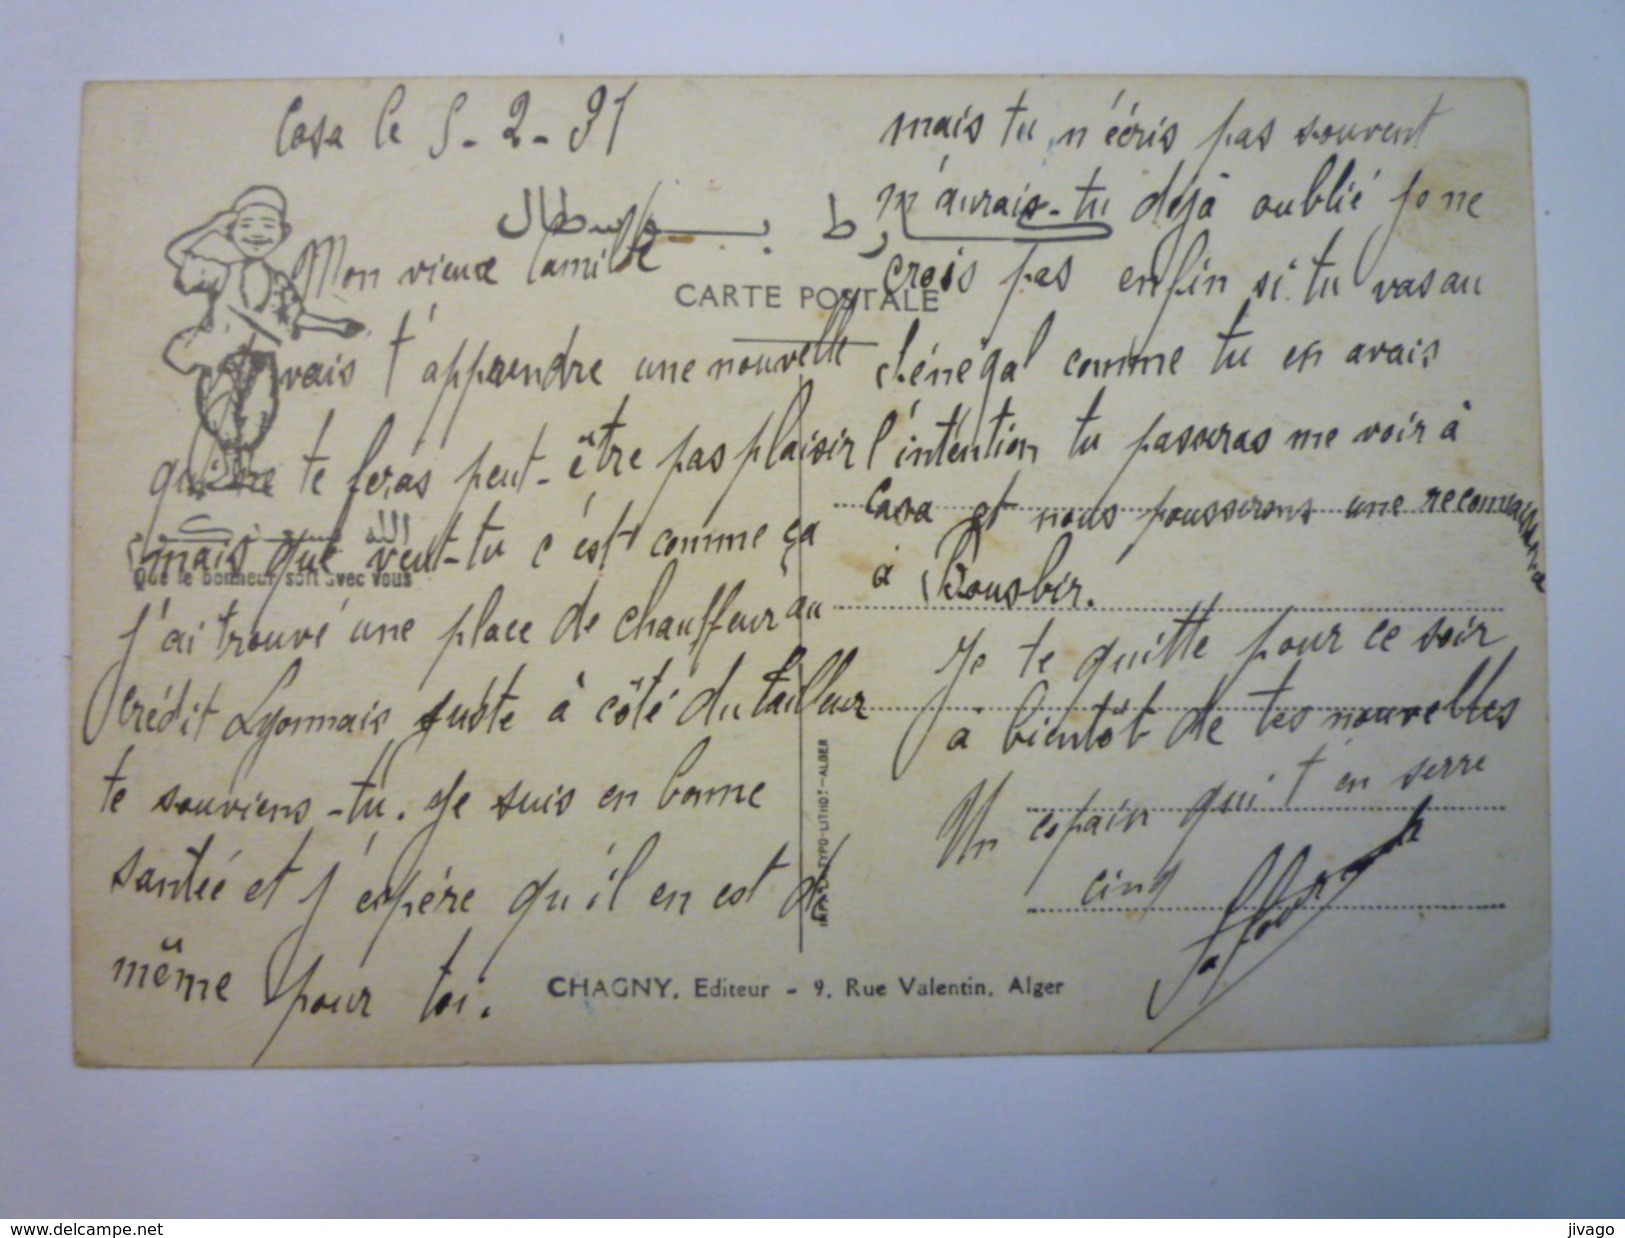 Casa le 5-2-31
Mon vieux Camille
CARTE POSTALE
vais t'apprendre une nouvelle
qui ne te feras peut-être pas plaisir
mais que veut-tu c'est comme ça
Que le bonheur soit avec vous
j'ai trouvé une place de chauffeur au
Crédit Lyonnais juste à côté du tailleur
te souviens-tu. Je suis en bonne
santée et j'espère qu'il en est de
même pour toi.
mais tu n'écris pas souvent
m'aurais-tu déjà oublié je ne
crois pas enfin si tu vas au
Sénégal comme tu en avais
l'intention tu passeras me voir à
Casa et nous pousserons une reconnaissance
à Bousbir.
Je te quitte pour ce soir
à bientôt de tes nouvelles
Un copain qui t'en serre
cinq
TYPO-LITHO - ALGER
CHAGNY, Editeur - 9, Rue Valentin, Alger
www.delcampe.net
jivago